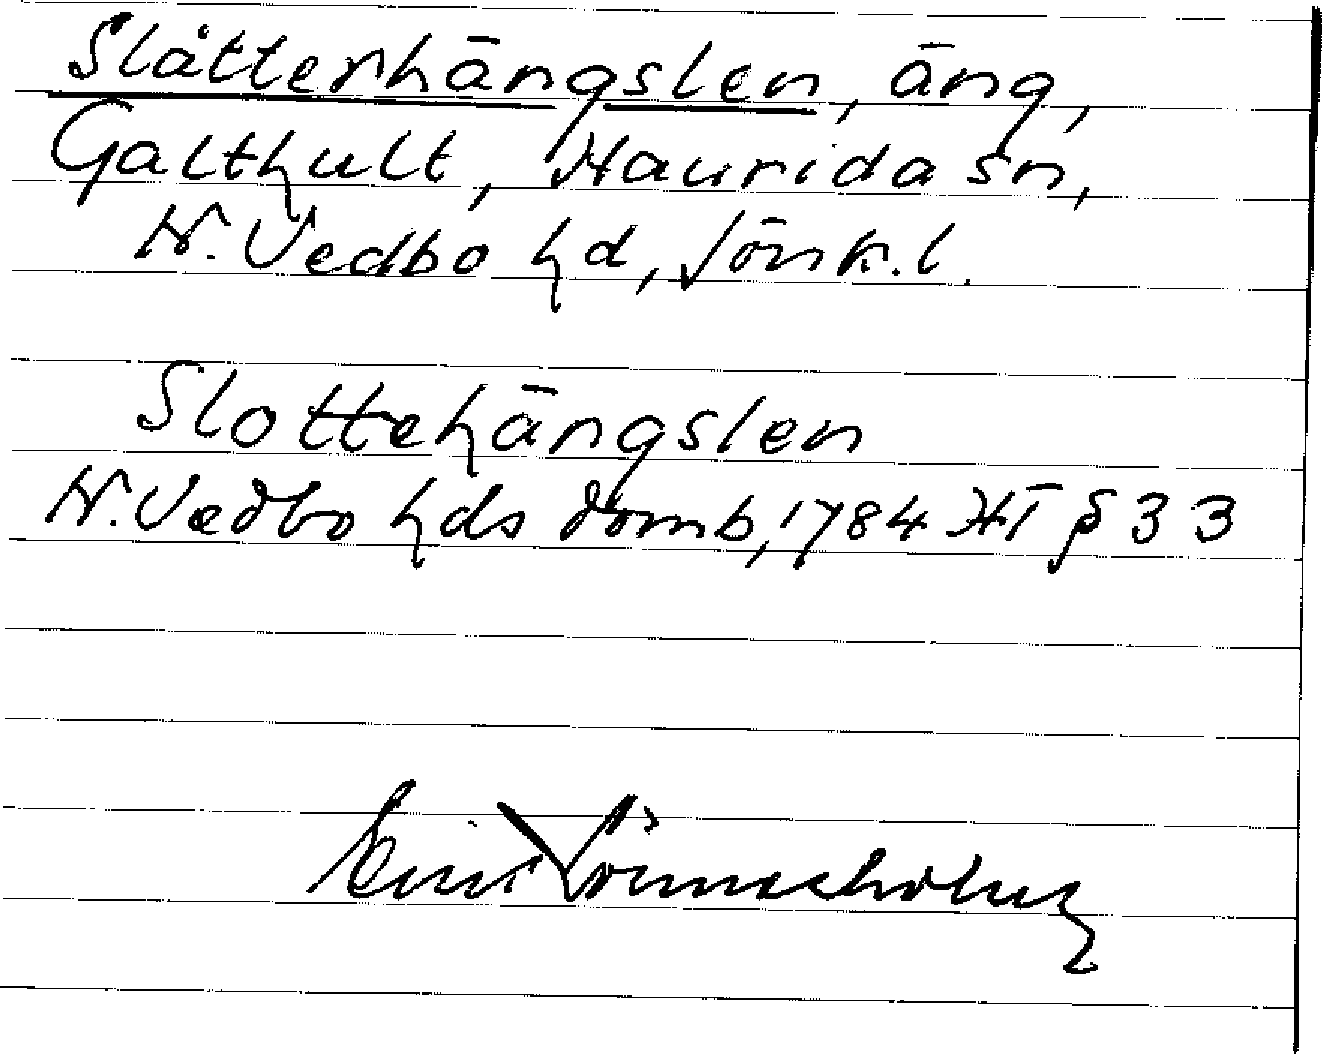 Slåtterhängslen, äng,
Galthult, Haurida sn,
N. Vedbo hd, Jönk. l.
Slottehängslen
N. Vedbo hds domb, 1784 HT § 33